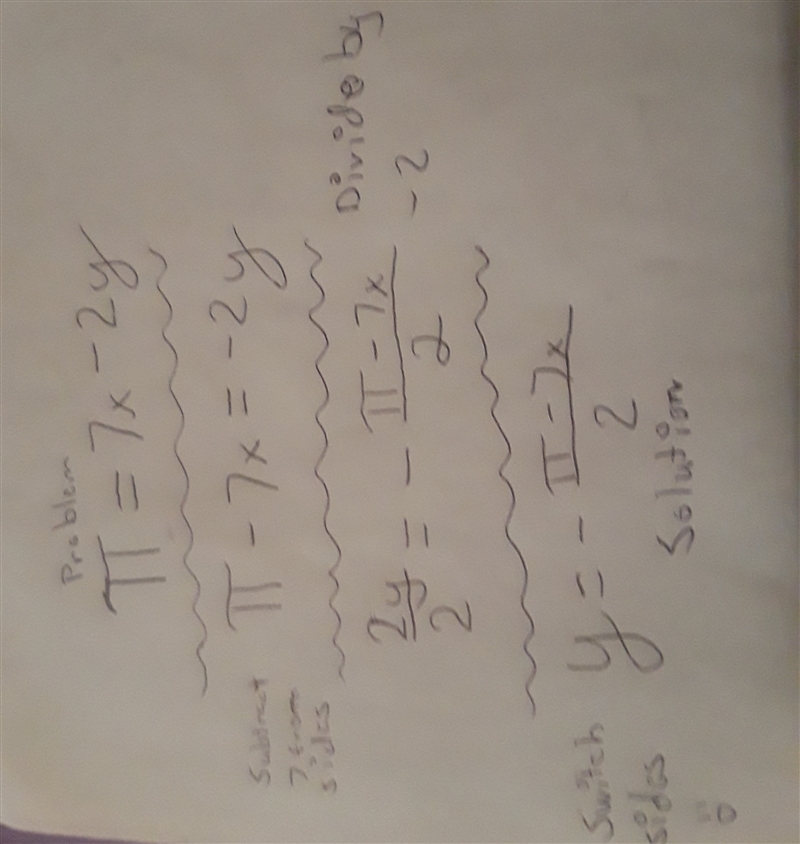 Problem
π = 7x - 2y
Subtract
7 from
sides
π - 7x = -2y
2y/2 = - π - 7x/2
Divide by
-2
Switch
sides
y = - π - 7x/2
Solution